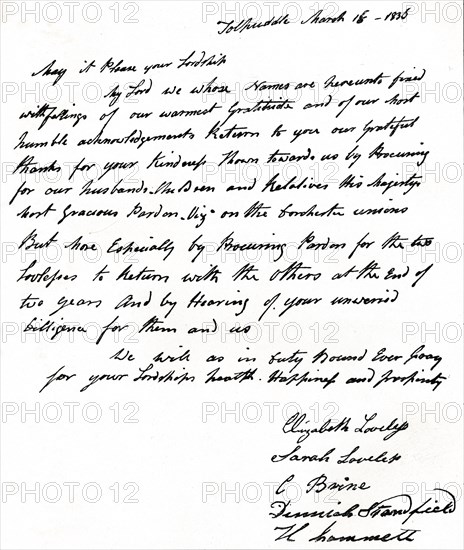 Tolpuddle March 18 - 1836
May it Please your Lordship
My Lord we whose Names are hereunto fixed
with felings of our warmest Gratitude and of our most
humble acknowledgements Return to you our Grateful
thanks for your Kindness Shown towards us by Procuring
for our husbands Children and Relatives His Majestys
most Gracious Pardon Viz on the Dorchester unions
But More Especially by Procuring Pardon for the two
Lovlesses to Return with the others at the End of
two years And by Hearing of your unweried
dilligence for them and us
We will as in Duty Bound Ever Pray
for your Lordships health. Happiness and prosperity
Elizabeth Loveless
Sarah Loveless
C Brine
Dinniah Standfield
H Hammett
PHOTO 12